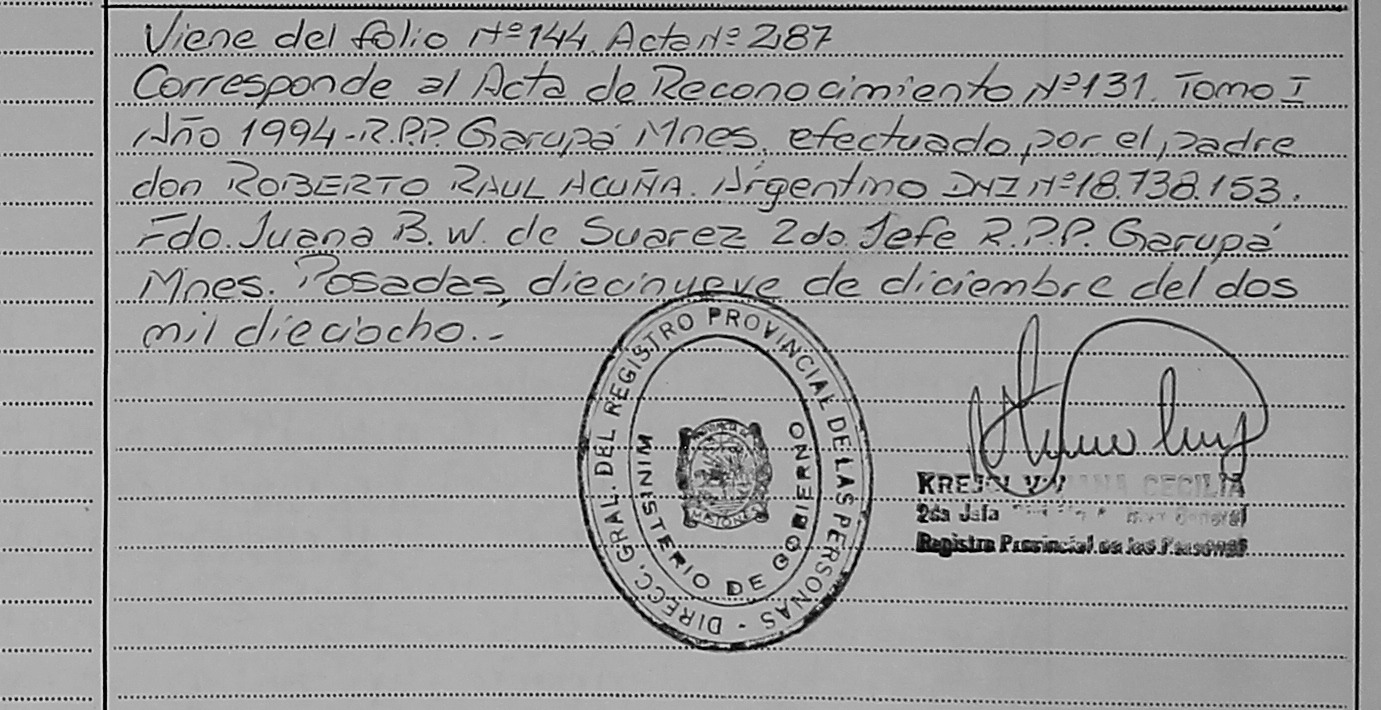 Viene del folio Nº 144. Acta Nº 287
Corresponde al Acta de Reconocimiento Nº 131. Tomo I
Año 1994-R.P.P. Garupá Mnes, efectuado, por el padre
don ROBERTO RAUL ACUÑA. Argentino DNI Nº 18.738.153.
Fdo. Juana B. W. de Suarez 2do. Jefe R.P.P. Garupá
Mnes. Posadas, diecinueve de diciembre del dos
mil dieciocho.-
DIRECC. GRAL. DEL REGISTRO PROVINCIAL DE LAS PERSONAS -
MINISTERIO DE GOBIERNO
MISIONES
CECILIA
2da Jefa
General
Registro Provincial de las Personas